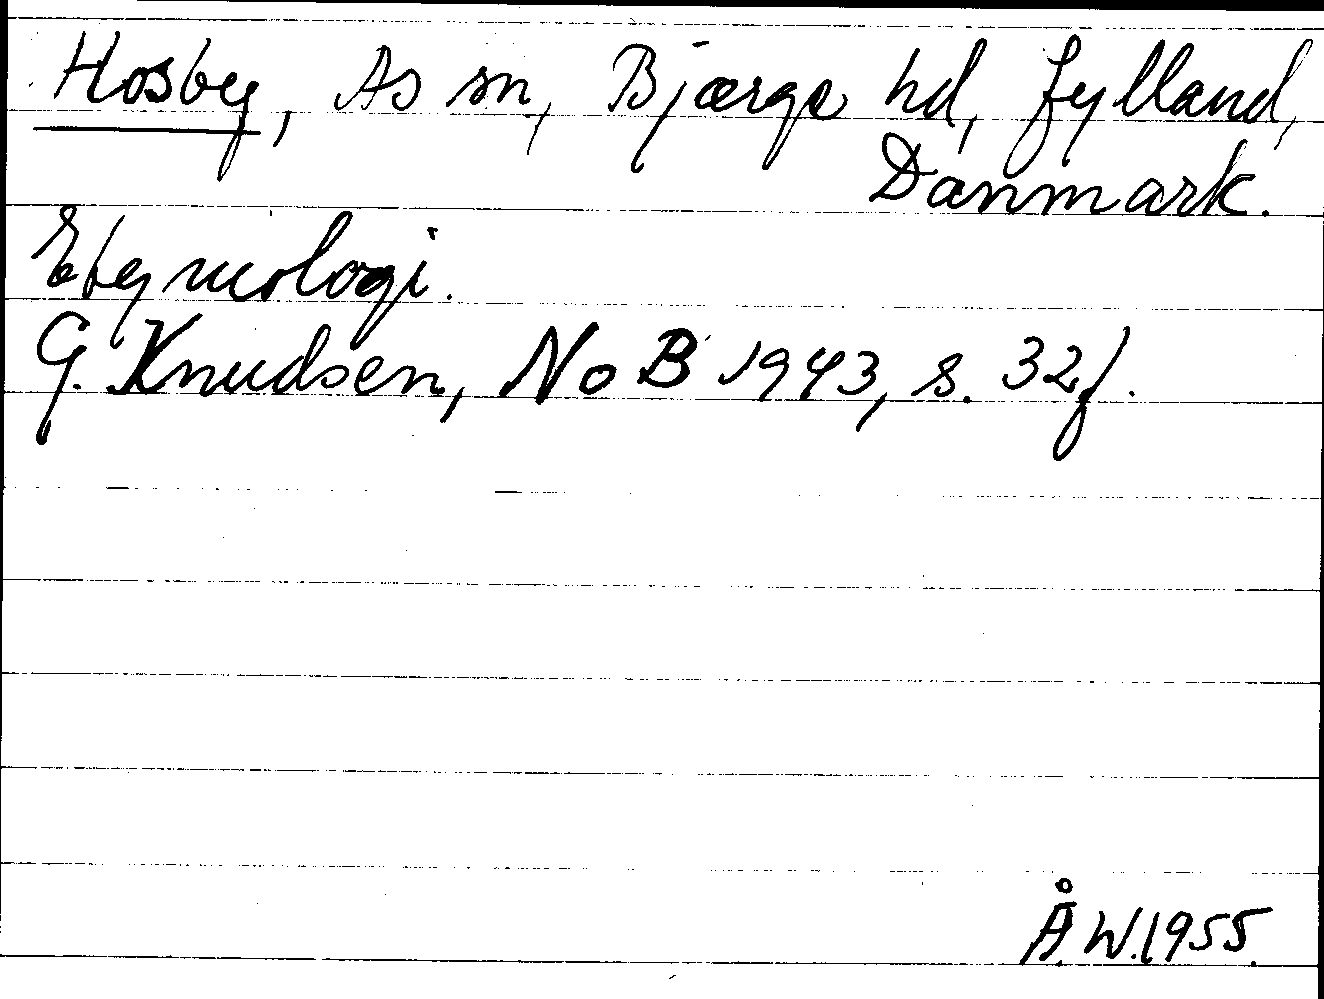 Hosby, As sn, Bjærge hd, Jylland,
Danmark.
Etymologi.
G. Knudsen, NoB 1943, s. 32 f.
Å.W.1955.